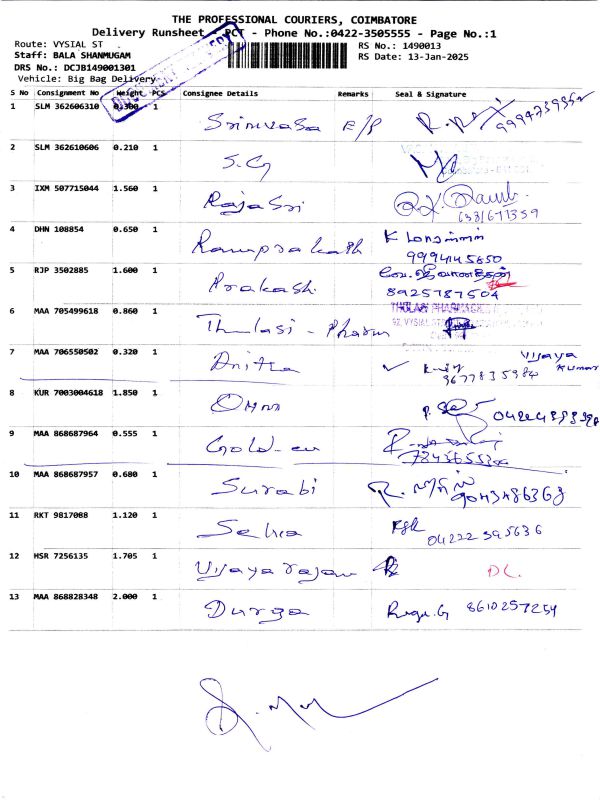 THE PROFESSIONAL COURIERS, COIMBATORE
Delivery Runsheet - PCT - Phone No.:0422-3505555 - Page No.:1
Route: VYSIAL ST RS No.: 1490013
Staff: BALA SHANMUGAM RS Date: 13-Jan-2025
DRS No.: DCJB149001301
Vehicle: Big Bag Delivery
S No Consignment No Weight PCS Consignee Details Remarks Seal & Signature
1 SLM 362606310 0.300 1 Srinivasa E/P
2 SLM 362610606 0.210 1 S.G
3 IXM 507715044 1.560 1 RajaSri
4 DHN 108854 0.650 1 Ramprakash K
5 RJP 3502885 1.600 1 Prakash 8925787504
6 MAA 705499618 0.860 1 Thulasi - Pharm THULASI PHARMACIES
7 MAA 706550502 0.320 1 Anitha Vijaya Kumar
8 KUR 7003004618 1.850 1 Omni
9 MAA 868687964 0.555 1 Gold-en
10 MAA 868687957 0.680 1 Surabi 9043486363
11 RKT 9817088 1.120 1 04222395636
12 HSR 7256135 1.705 1 Vijaya rajan DC.
13 MAA 868828348 2.000 1 Durga 8610257254